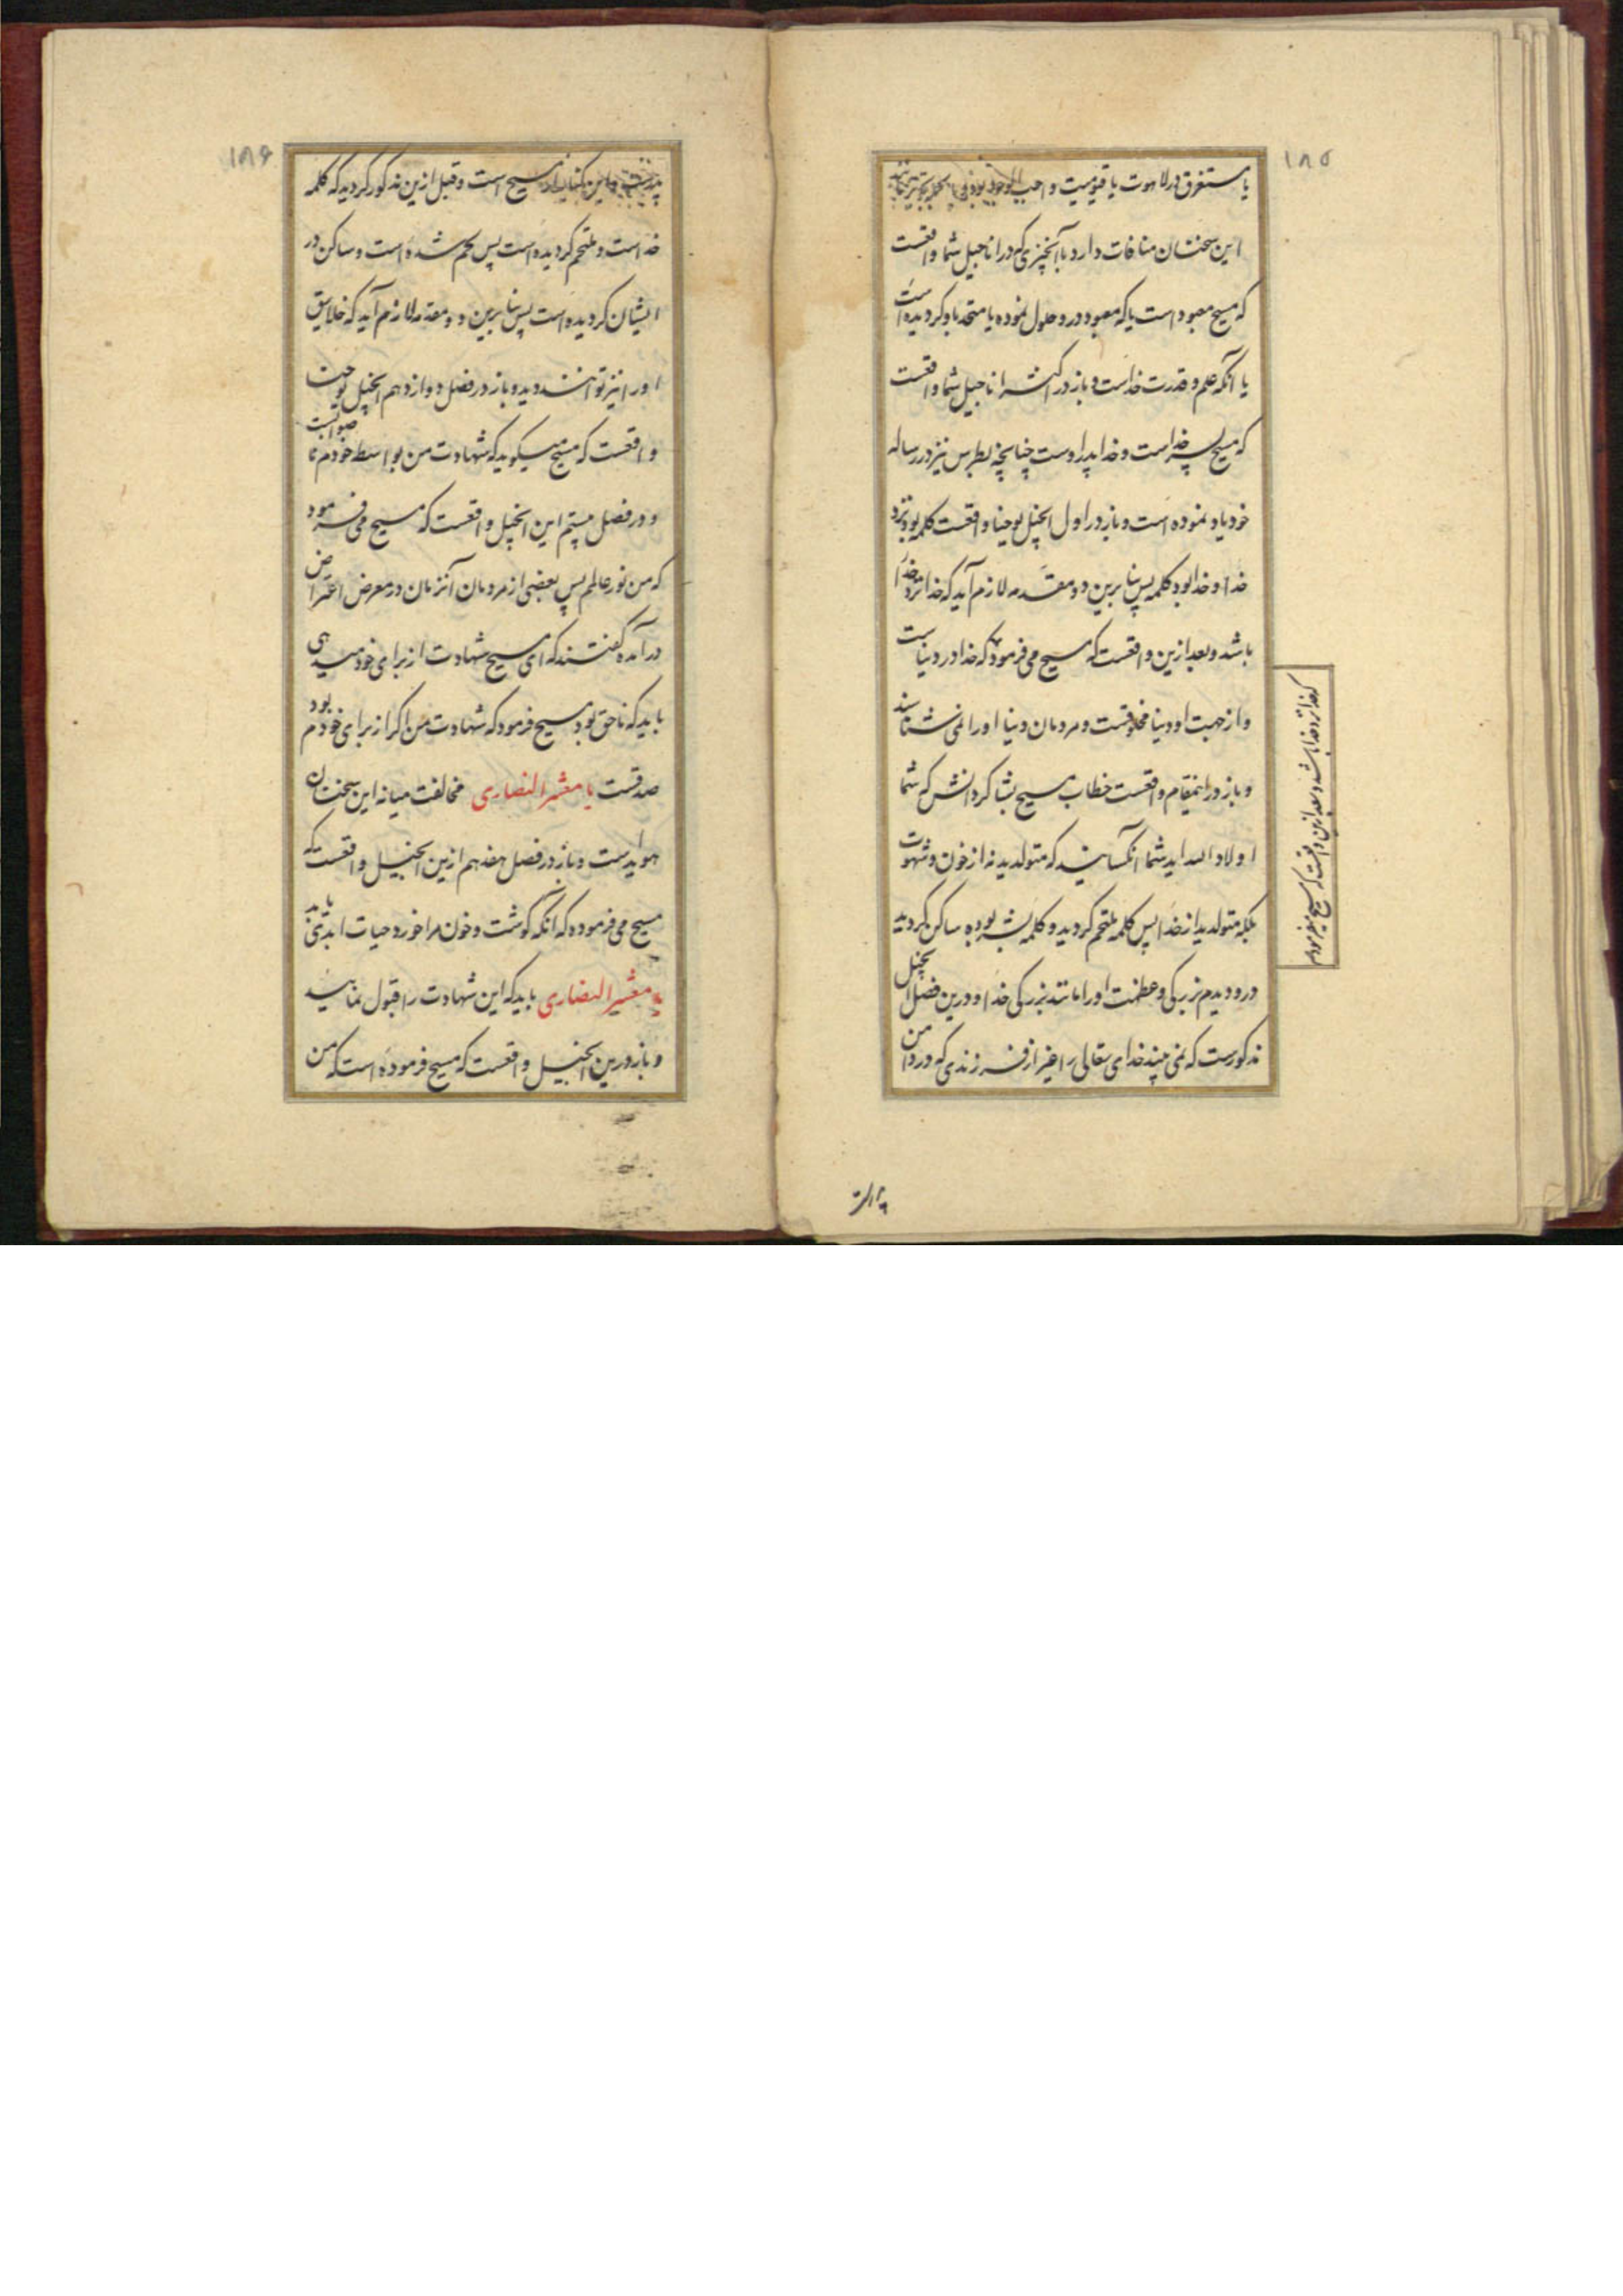 ۱۸۵
یا مستغرق در لاهوت یا قیومیت و واجب الوجود بود
این سخنتان منافات دارد با آنچیزی که در اناجیل شما واقعست
که مسیح معبود است یا که معبود در و حلول نموده یا متحد باو کردیده است
یا آنکه علم و قدرت خداست و باز در اکثر اناجیل شما واقعست
که مسیح پسر خداست و خدا پدر اوست چنانچه بطرس نیز در رساله
خود یاد نموده است و باز در اول انجیل یوحنا واقعست کلمه بود نزد
خدا و خدا بود کلمه پس بنا برین دو مقدمه لازم آید که خدا نزد خدا
باشد و بعد ازین واقعست که مسیح می فرمود که خدا در دنیاست
و از جهت او دنیا مخلوقست و مردمان دنیا او را نمی شناسند
و باز در اینمقام واقعست خطاب مسیح بشاکردانش که شما
اولاد الله اید شما آنکسانید که متولدید نه از خون و شهوت
بلکه متولدید از خدا پس کلمه ملتحم کردید و کلمه بشر بوده ساکن کردید
درو دیدم بزرکی و عظمت او را مانند بزرکی خدا و درین فصل انجیل
مذکورست که نمی بیند خدای تعالی را غیر از فرزندی که در دامن
که خدا نزد خدا باشد و بعد ازین واقعست که مسیح میفرمود
پدرست
۱۸۶
پدرست مسیح است و قبل ازین مذکور کردید که کلمه
خداست و ملتحم کردیده است پس لحم شده است و ساکن در
ایشان کردیده است پس بنا برین دو مقدمه لازم آید که خلایق
او را نیز توانند دید و باز در فصل دوازدهم انجیل یوحنا
واقعست که مسیح میکوید که شهادت من بواسطه خودم نا صوابست
و در فصل بیستم این انجیل واقعست که مسیح می فرمود
که من نور عالمم پس بعضی از مردمان آنزمان در معرض اعتراض
در آمده گفتند که ای مسیح شهادت از برای خود میدهی
باید که ناحق بود مسیح فرمود که شهادت من اکر از برای خودم بود
صدقست یا معشر النصاری مخالفت میانه این سخنتان
هویداست و باز در فصل هفدهم ازین انجیل واقعست که
مسیح می فرموده که آنکه گوشت و خون مرا خورد حیات ابدی یابد
یا معشر النصاری باید که این شهادت را قبول نمائید
و باز درین انجیل واقعست که مسیح فرموده است که من